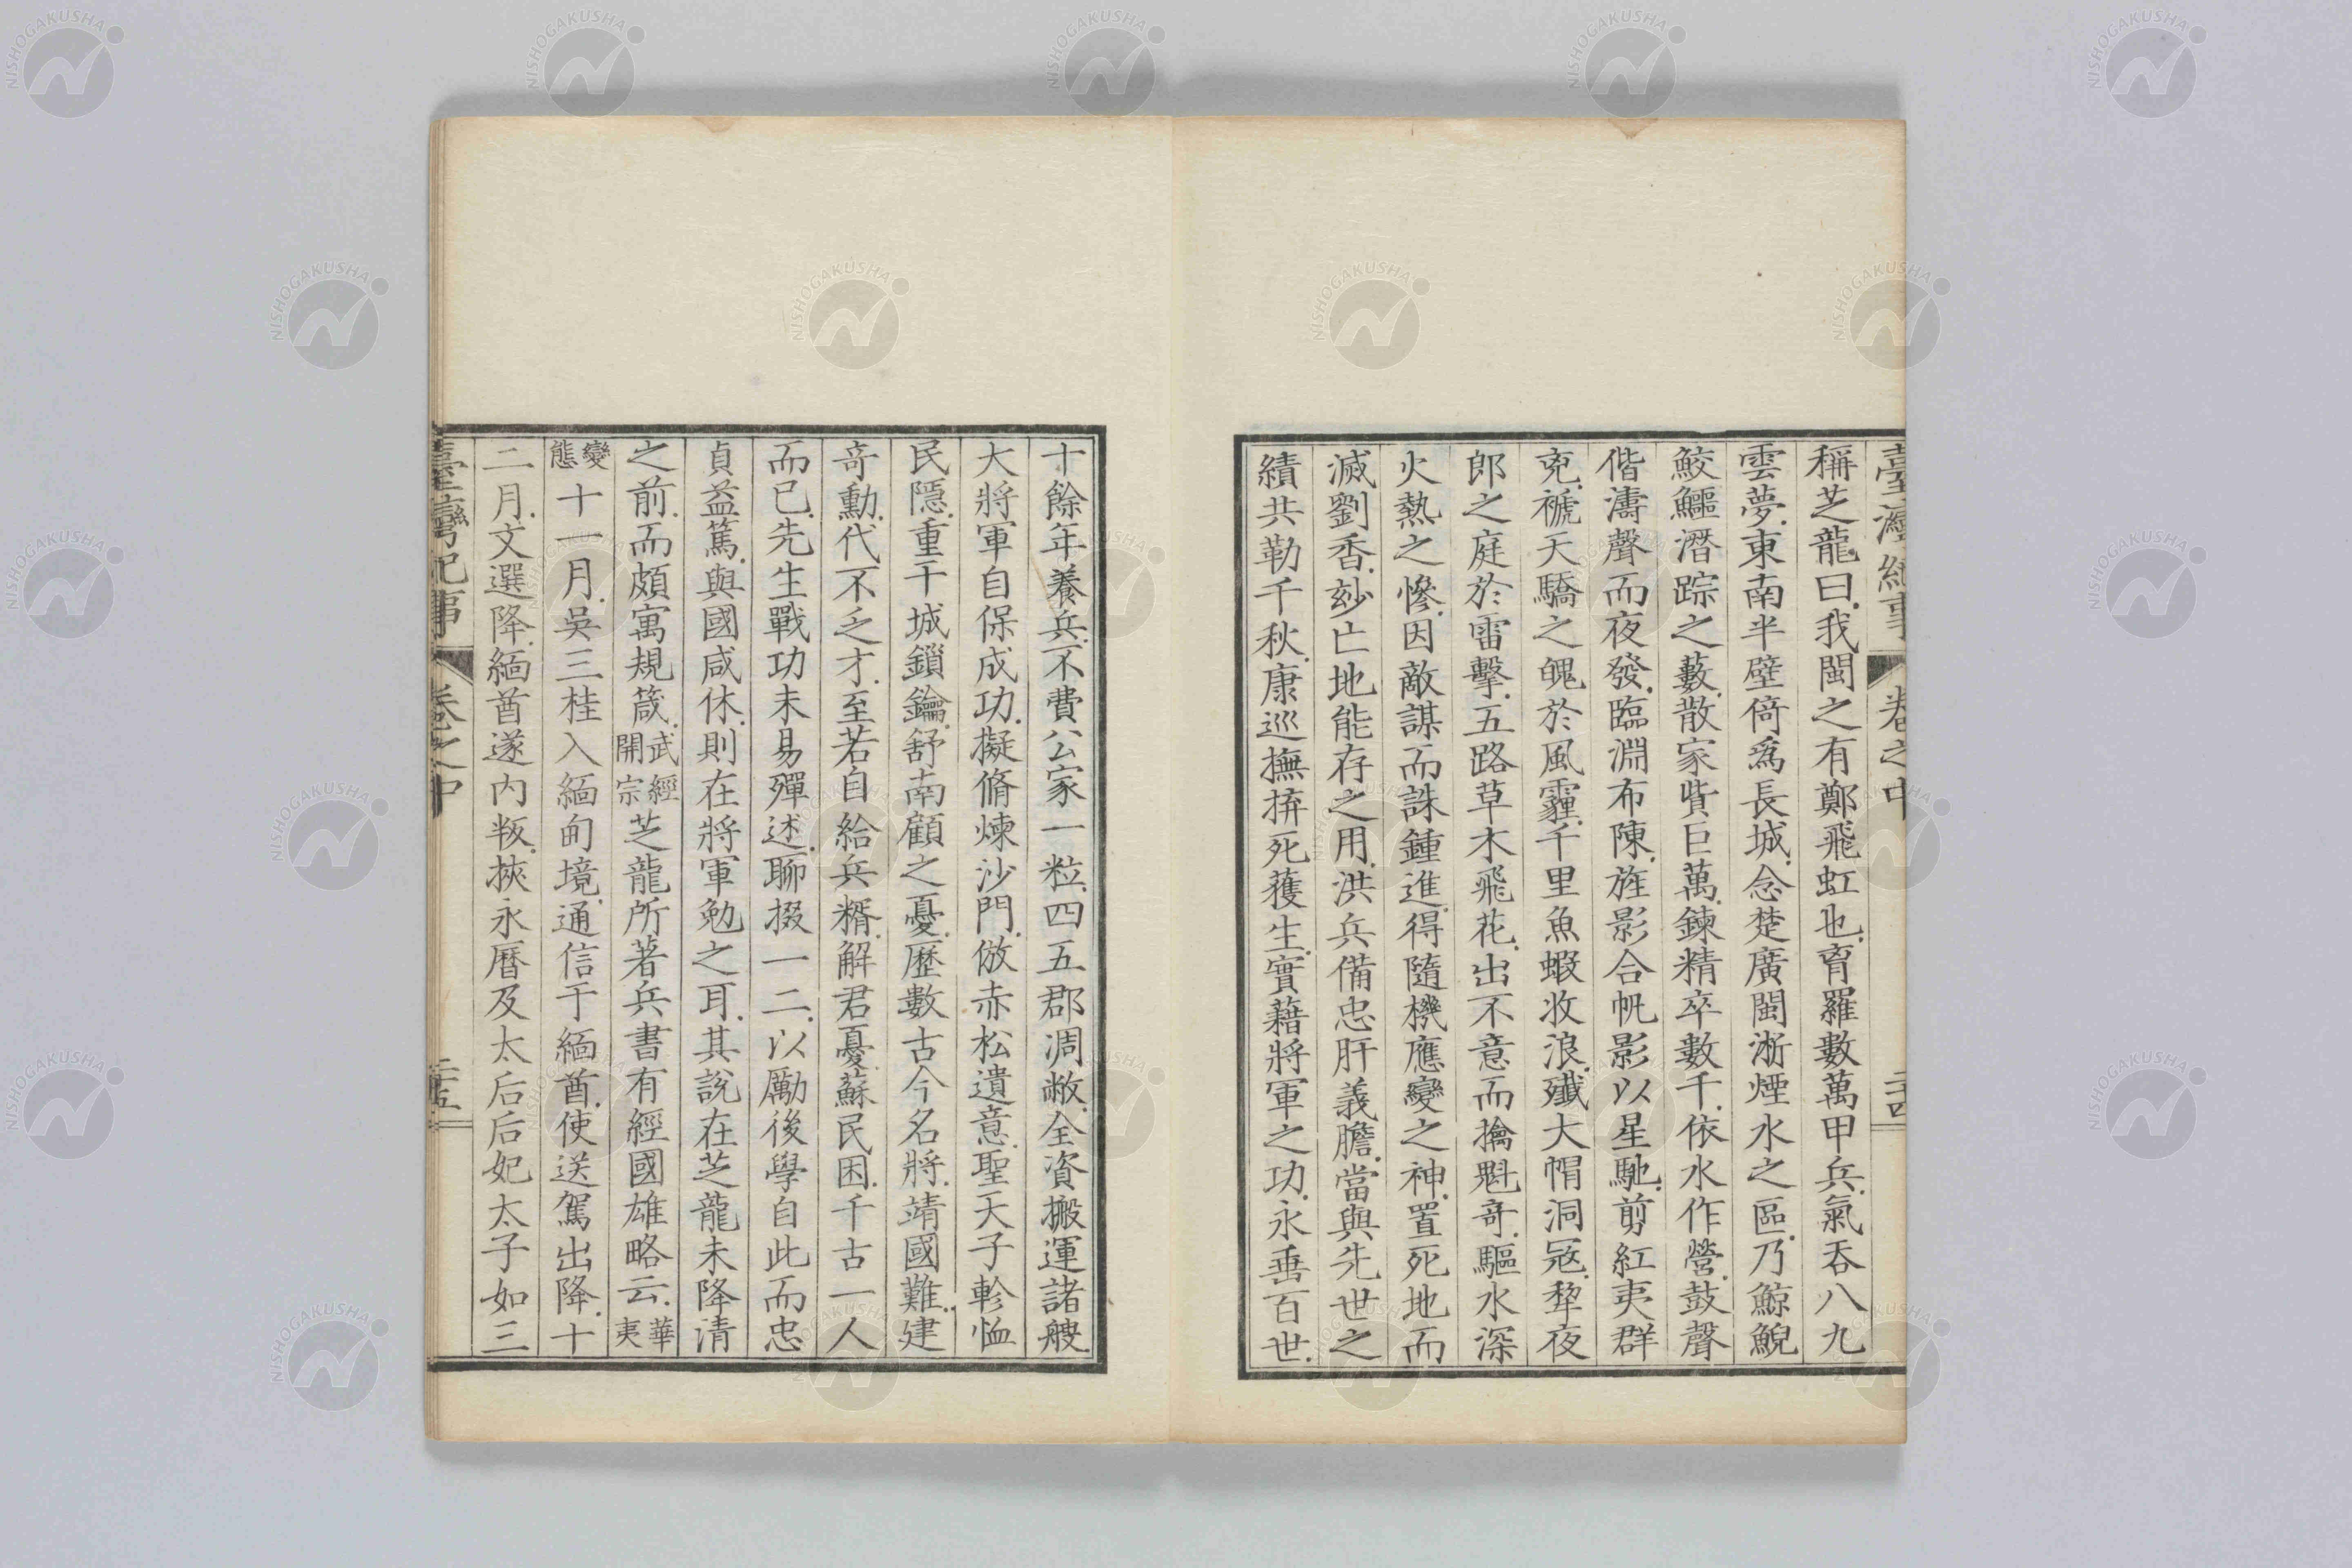 臺灣紀事 卷之中 二十四
稱芝龍曰我閩之有鄭飛虹也育羅數萬甲兵氣吞八九
雲夢東南半壁倚爲長城念楚廣閩淅煙水之區乃鯨鯢
鮫鱷潛踪之藪散家貲巨萬鍊精卒數千依水作營鼓聲
偕濤聲而夜發臨淵布陳旌影合帆影以星馳剪紅夷群
兇褫天驕之魄於風霾千里魚蝦收浪殲大帽洞冦犂夜
郎之庭於雷擊五路草木飛花出不意而擒魁奇驅水深
火熱之慘因敵謀而誅鍾進得隨機應變之神置死地而
滅劉香玅亡地能存之用洪兵備忠肝義膽當與先世之
績共勒千秋康巡撫拚死蒦生實藉將軍之功永垂百世
十餘年養兵不費公家一粒四五郡凋敝全資搬運諸艘
大將軍自保成功擬脩煉沙門倣赤松遺意聖天子軫恤
民隱重干城鎖鑰舒南顧之憂歷數古今名將靖國難建
奇勳代不乏才至若自給兵糈解君憂蘇民困千古一人
而已先生戰功未易殫述聊掇一二以勵後學自此而忠
貞益篤與國咸休則在將軍勉之耳其說在芝龍未降清
之前而頗寓規箴武經開宗芝龍所著兵書有經國雄略云華夷
變態十一月吳三桂入緬甸境通信于緬酋使送駕出降十
二月文選降緬酋遂内叛挾永曆及太后后妃太子如三
臺灣紀事 卷之中 二十五
NISHOGAKUSHA